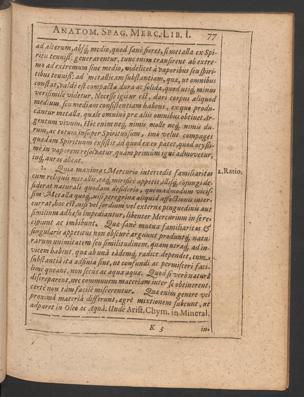 ANATOM. SPAG. MERC. LIB. I. 77
ad alterum, absq; medio, quod sanè fieret, si metalla ex Spi-
ritu tenuiss: generarentur, tunc enim transirent ab extre-
mo ad extremum sine medio, videlicet à vaporibus seu spiri-
tibus tenuiss: ad metallicam substantiam, quæ, ut omnibus
constat, valdè est compacta, dura ac solida, quod utiq; minus
verisimile videtur, Necesse igitur est, dari corpus aliquod
medium, seu mediam consistentiam habens, ex qua produ-
cantur metalla, quale omnino præ aliis omnibus obtinet Ar-
gentum vivum. Hic enim neq; nimis molle neq; nimis du-
rum, ac totum insuper Spirituosum, imò velut compages
quædam Spirituum existit id quod ex eo patet, quod
in vaporem resolvatur, quam primum igni admovetur,
aut ac abeat.
2. Ratio.
Quia maxima Mercurio intercedit familiaritas
cum reliquis metallis, eaq; mirificè appetit, aliisq; conjungi de-
siderat naturali quodam desiderio, quemadmodum vicis-
sim Metalla quoq;, nisi peregrina aliqua affectionis inter-
currat, hoc est, nisi vel sordium vel externæ pinguedinis aut
similium adhæsu impediantur, libenter Mercurium in se re-
cipiunt ac imbibunt. Quæ sanè mutua familiaritas &
singularis appetitus non obscurè arguunt produntq; natu-
rarum unimitatem seu similitudinem, quam utraq; ad in-
vicem habent, quæ ab unâ eâdemq; radice dependet, cum
substantiâ ita adfinia sint, ut confundi ac permisceri faci-
limè queant, non secus ac aqua aquæ. Quod si verò naturâ
discreparent, nec communem materiam inter se obtinerent,
certè non tàm facilè miscerentur. Quæ enim genere vel
proximâ materiâ differunt, ægrè mixtionem subeunt, ut
adparet in Oleo ac Aquâ. Unde Arist. Chym. in Mineral.
K 5
in-